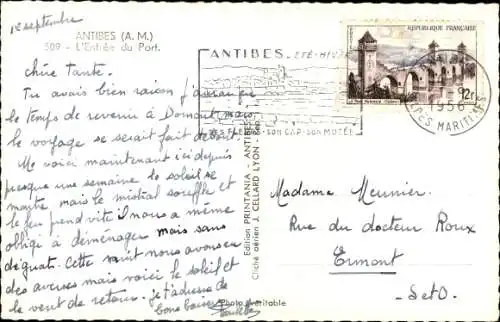 1er septembre
ANTIBES (A. M.)
509 - L'Entrée du Port.
chère Tante.
Tu avais bien raison j'aurai eu
le temps de revenir à Domont, mais
le voyage se serait fait debout.
Me voici maintenant ici depuis
presque une semaine le soleil se
montre mais le mistral souffle et
le feu prend vite il nous a même
obligé à déménager mais sans
dégats. Cette nuit nous avons eu
des averses mais voici le soleil et
le vent de retour. je t'adresse de
bons baisers
Edition PRINTANIA - ANTIBES
Cliché aérien J. CELLARD LYON - Rep.
Photo véritable
ANTIBES. ÉTÉ-HIVER
SES FLEURS - SON CAP - SON MUSÉE
RÉPUBLIQUE FRANÇAISE
12f
1956
ALPES MARITIMES
Madame Meunier.
Rue du docteur Roux
Ermont
S et O.